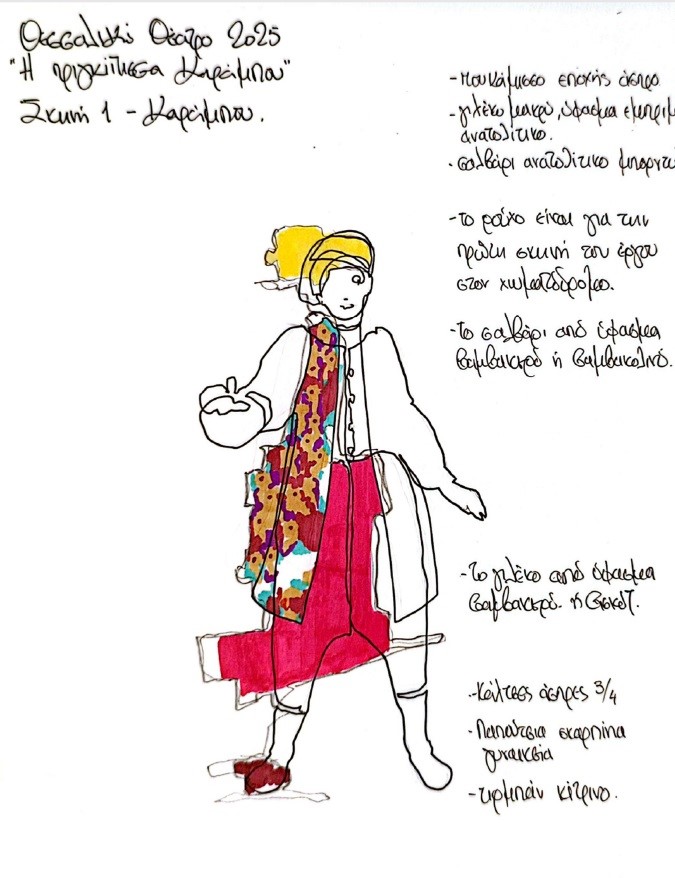 Θεσσαλικό Θέατρο 2025
"Η πριγκίπισσα Καράμπου"
Σκηνή 1 - Καράμπου.
- πουκάμισο εποχής άσπρο
- γιλέκο μακρύ, ύφασμα εμπριμ
ανατολίτικο.
- σαλβάρι ανατολίτικο μπορντώ
- το ρούχο είναι για την
πρώτη σκηνή του έργου
στον χωματόδρομο.
- το σαλβάρι από ύφασμα
βαμβακερό ή βαμβακολινό.
- το γιλέκο από ύφασμα
βαμβακερό. ή
- κάλτσες άσπρες 3/4
- Παπούτσια σκαρπίνα
γυναικεία
- τιρμπάν κίτρινο.